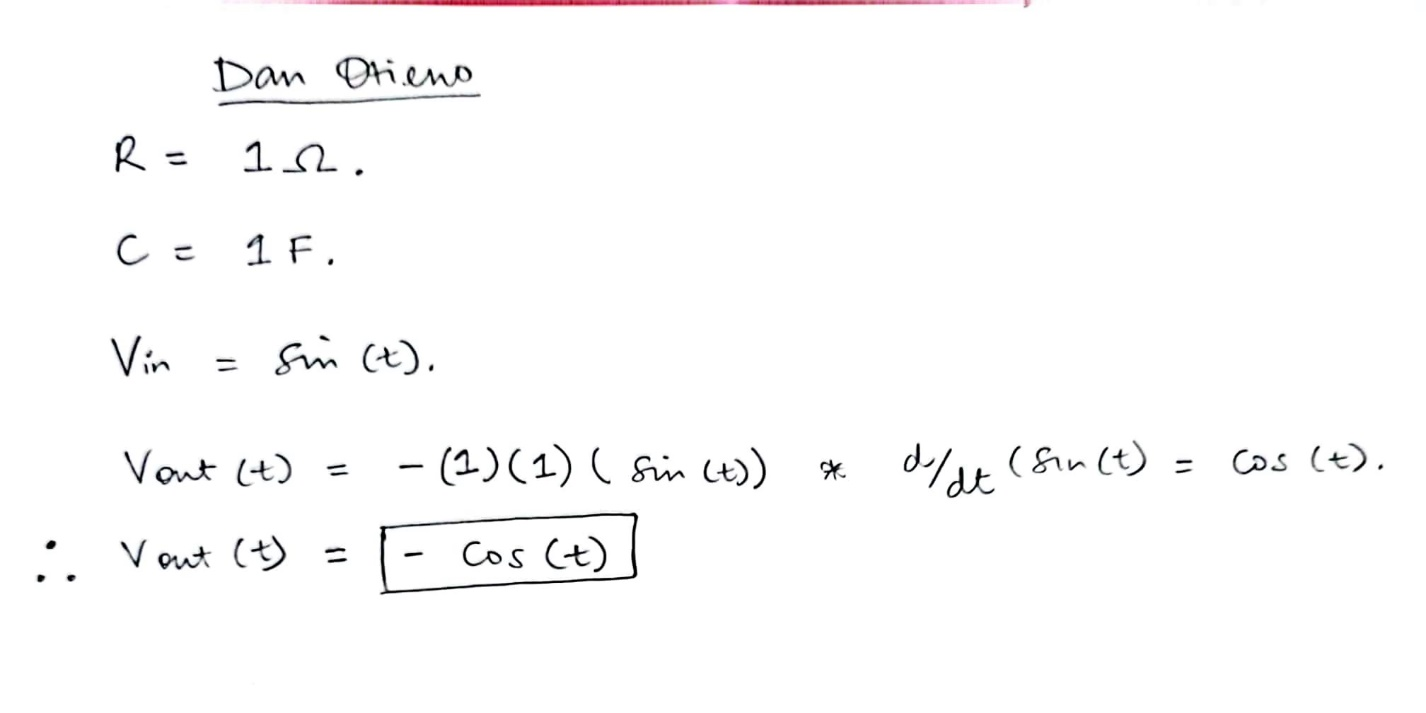 Dan Otieno
R = 1Ω.
C = 1F.
Vin = sin (t).
Vout (t) = - (1)(1) ( sin (t)) * d/dt (sin (t) = cos (t).
∴ Vout (t) = - cos (t)